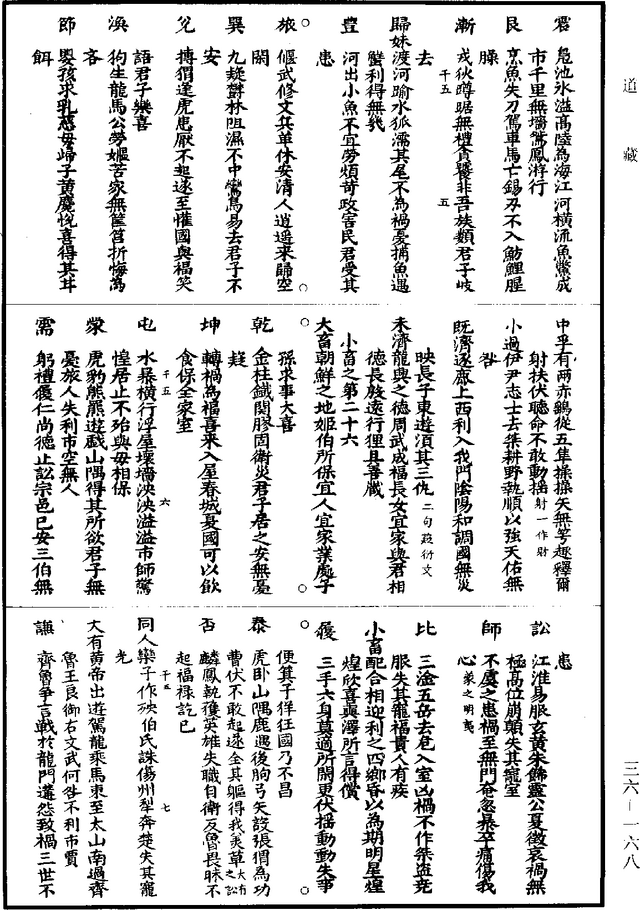 道藏
震 危池氷溢高陸為海江河横流魚鼈成
市千里無墻鴛鳳游行
艮 烹魚失刀駕車馬亡錫刃不入魴鯉腥
臊
漸 戎狄蹲踞無禮貪饕非吾族類君子岐
千五 五
去
歸妹 渡河踰水狐濡其尾不為禍憂捕魚遇
蟹利得無幾
豐 河出小魚不宜勞煩苛政害民君受其
患
旅 偃武修文兵革休安清人逍遥來歸空
閑
巽 九疑鬱林阻濕不中鸞鳥易去君子不
安
兌 搏猬逢虎患厭不起遂至懽國與福笑
語君子樂喜
渙 狗生龍馬公勞嫗苦家無筐筥折悔為
吝
節 嬰孩求乳慈母歸子黃麑悅喜得其甘
餌
中孚 有兩赤鷂從五隼操操矢無筈趣釋爾
射扶伏聽命不敢動摇 射一作財
小過 伊尹志士去桀耕野執順以強天佑無
咎
既濟 逐鹿上西利入我門陰陽和調國無災
殃長子東遊須其三仇 二句疑衍文
未濟 龍輿之德周武成福長女宜家與君相
德長股遠行狸且善藏
小畜之第二十六
大畜 朝鮮之地姬伯所保宜人宜家業處子
孫求事大喜
乾 金柱鐵關膠固衛災君子居之安無憂
疑
坤 轉禍為福喜來入屋春城夏國可以飲
食保全家室
屯 水暴横行浮屋壞墻泱泱溢溢市師驚
千五 六
惶居止不殆與母相保
蒙 虎豹熊羆遊戲山隅得其所欲君子無
憂旅人失利市空無人
需 躬禮履仁尚德止訟宗邑已安三伯無
患
訟 江淮易服玄黃朱飾靈公夏徵哀禍無
極高位崩顛失其寵室
師 不虞之患禍至無門奄忽暴卒痛傷我
心 蒙之明夷
比 三塗五岳去危入室凶禍不作桀盜堯
服失其寵福貴人有疾
小畜 配合相迎利之四鄉昏以為期明星煌
煌欣喜爽懌所言得償
履 三手六身莫適所閑更伏摇動動失事
便箕子佯狂國乃不昌
泰 虎卧山隅鹿過後朐弓矢設張猬為功
曹伏不敢起遂全其軀得我美草 大有之訟
否 麟鳳執獲英雄失職自衛反魯畏昧不
起福祿訖已
同人 欒子作殃伯氏誅傷州犁奔楚失其寵
千五 七
光
大有 黃帝出遊駕龍乘馬東至太山南過齊
魯王良御右文武何咎不利市賈
謙 齊魯爭言戰於龍門遘怨致禍三世不
三六—一六八